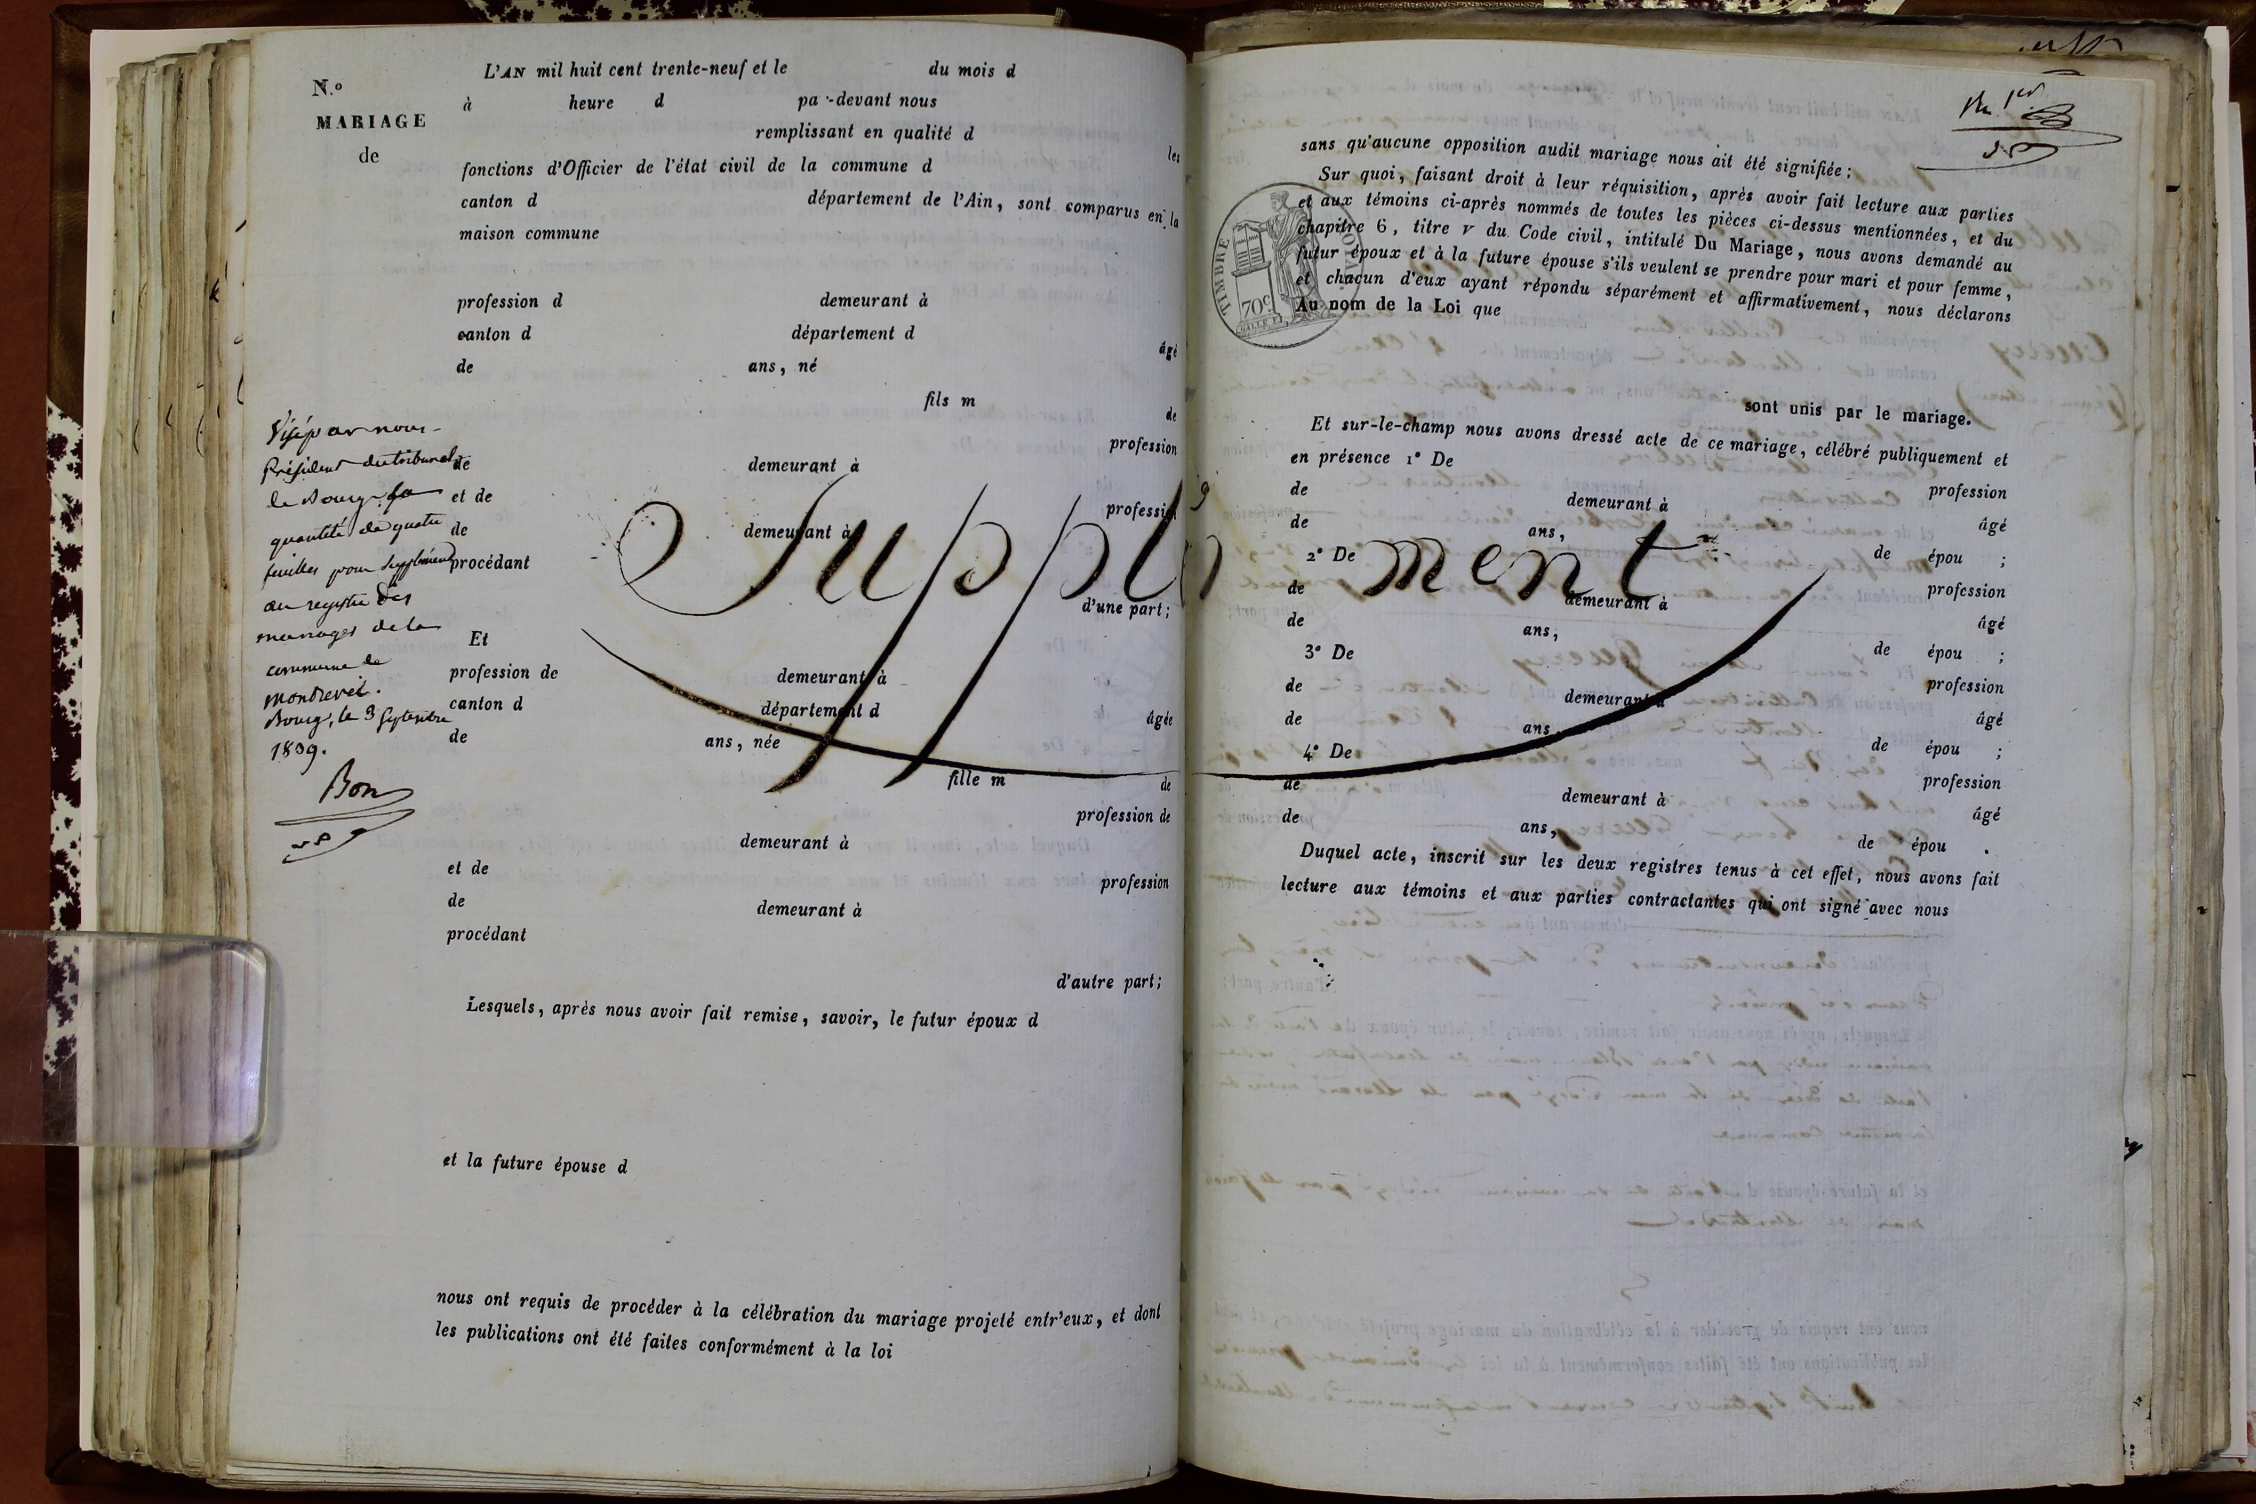 N.º
MARIAGE
de
L'AN mil huit cent trente-neuf et le du mois d
à heure d pa -devant nous
remplissant en qualité d les
fonctions d'Officier de l'état civil de la commune d
canton d département de l'Ain, sont comparus en la
maison commune
profession d demeurant à
canton d département d âgé
de ans, né
fils m de
profession
de demeurant à
et de profession
de demeurant à
procédant
d'une part;
Et
profession de demeurant à
canton d département d âgée
de ans, née
fille m de
profession de
demeurant à
et de profession
de demeurant à
procédant
d'autre part;
Lesquels, après nous avoir fait remise, savoir, le futur époux d
et la future épouse d
nous ont requis de procéder à la célébration du mariage projeté entr'eux, et dont
les publications ont été faites conformément à la loi
Visé par nous
Président du tribunal
de Bourg la
quantité de quatre
feuilles pour Supplément
au registre des
mariages de la
commune de
Montrevel.
Bourg, le 3 Septembre
1839.
Bon
Supplément
TIMBRE ROYAL
70 c.
sans qu'aucune opposition audit mariage nous ait été signifiée;
Sur quoi, faisant droit à leur réquisition, après avoir fait lecture aux parties
et aux témoins ci-après nommés de toutes les pièces ci-dessus mentionnées, et du
chapitre 6, titre v du Code civil, intitulé Du Mariage, nous avons demandé au
futur époux et à la future épouse s'ils veulent se prendre pour mari et pour femme,
et chacun d'eux ayant répondu séparément et affirmativement, nous déclarons
Au nom de la Loi que
sont unis par le mariage.
Et sur-le-champ nous avons dressé acte de ce mariage, célébré publiquement et
en présence 1º De
de demeurant à profession
de ans, âgé
2º De de épou ;
de demeurant à profession
de ans, âgé
3º De de épou ;
de demeurant à profession
de ans, âgé
4º De de épou ;
de demeurant à profession
de ans, âgé
de épou .
Duquel acte, inscrit sur les deux registres tenus à cet effet, nous avons fait
lecture aux témoins et aux parties contractantes qui ont signé avec nous